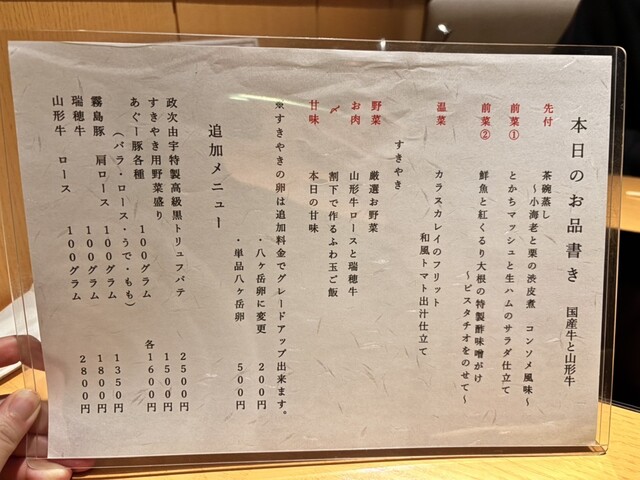 本日のお品書き 国産牛と山形牛
先付 茶碗蒸し
～小海老と栗の渋皮煮 コンソメ風味～
前菜① とかちマッシュと生ハムのサラダ仕立て
前菜② 鮮魚と紅くるり大根の特製酢味噌がけ
～ピスタチオをのせて～
温菜 カラスカレイのフリット
和風トマト出汁仕立て
すきやき
野菜 厳選お野菜
お肉 山形牛ロースと瑞穂牛
〆 割下で作るふわ玉ご飯
甘味 本日の甘味
※すきやきの卵は追加料金でグレードアップ出来ます。
・八ヶ岳卵に変更 200円
・単品八ヶ岳卵 500円
追加メニュー
政次由宇特製高級黒トリュフパテ 2500円
すきやき用野菜盛り 1500円
あぐー豚各種 100グラム 各1600円
（バラ・ロース・うで・もも）
霧島豚 肩ロース 100グラム 1350円
瑞穂牛 100グラム 1800円
山形牛 ロース 100グラム 2800円